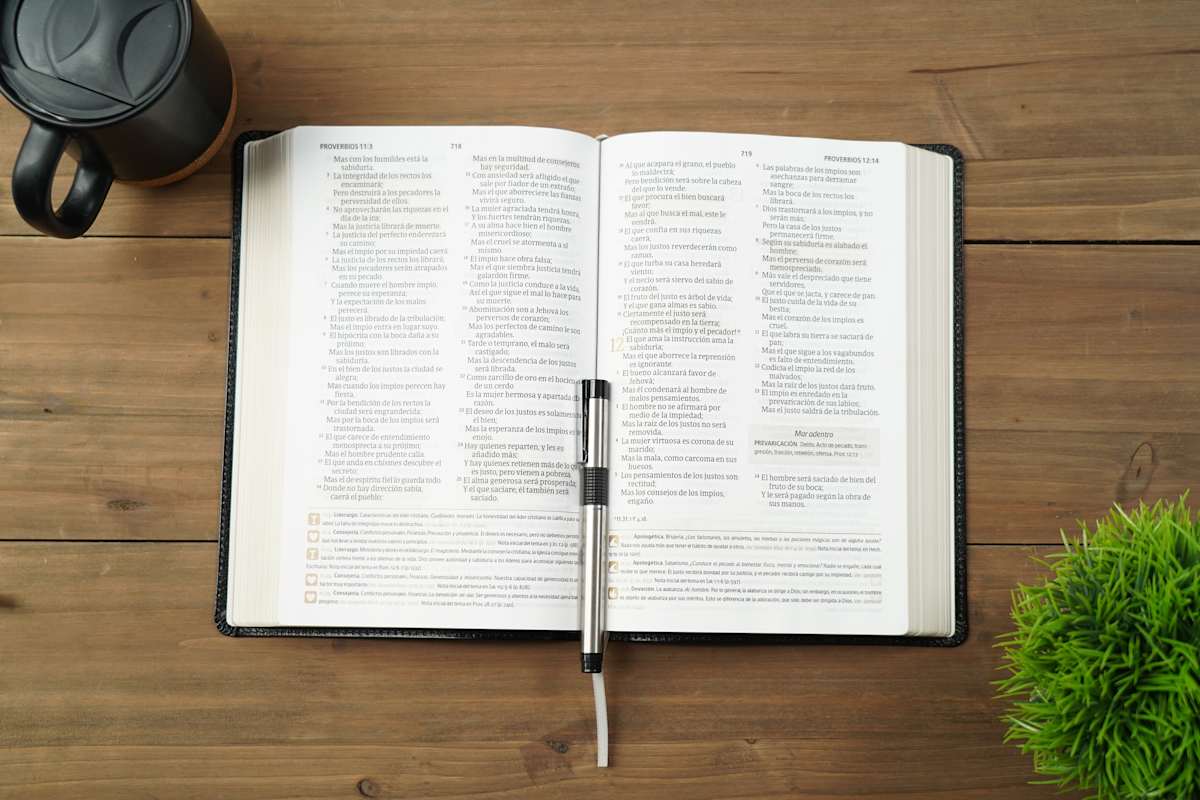 PROVERBIOS 11:3
718
Mas con los humildes está la
sabiduría.
3 La integridad de los rectos los
encaminará;
Pero destruirá a los pecadores la
perversidad de ellos.
4 No aprovecharán las riquezas en el
día de la ira;
Mas la justicia librará de muerte.
5 La justicia del perfecto enderezará
su camino;
Mas el impío por su impiedad caerá.
6 La justicia de los rectos los librará;
Mas los pecadores serán atrapados
en su pecado.
7 Cuando muere el hombre impío,
perece su esperanza;
Y la expectación de los malos
perecerá.
8 El justo es librado de la tribulación;
Mas el impío entra en lugar suyo.
9 El hipócrita con la boca daña a su
prójimo;
Mas los justos son librados con la
sabiduría.
10 En el bien de los justos la ciudad se
alegra;
Mas cuando los impíos perecen hay
fiesta.
11 Por la bendición de los rectos la
ciudad será engrandecida;
Mas por la boca de los impíos será
trastornada.
12 El que carece de entendimiento
menosprecia a su prójimo;
Mas el hombre prudente calla.
13 El que anda en chismes descubre el
secreto;
Mas el de espíritu fiel lo guarda todo.
14 Donde no hay dirección sabia,
caerá el pueblo;
Mas en la multitud de consejeros
hay seguridad.
15 Con ansiedad será afligido el que
sale por fiador de un extraño;
Mas el que aborreciere las fianzas
vivirá seguro.
16 La mujer agraciada tendrá honra,
Y los fuertes tendrán riquezas.
17 A su alma hace bien el hombre
misericordioso;
Mas el cruel se atormenta a sí
mismo.
18 El impío hace obra falsa;
Mas el que siembra justicia tendrá
galardón firme.
19 Como la justicia conduce a la vida,
Así el que sigue el mal lo hace para
su muerte.
20 Abominación son a Jehová los
perversos de corazón;
Mas los perfectos de camino le son
agradables.
21 Tarde o temprano, el malo será
castigado;
Mas la descendencia de los justos
será librada.
22 Como zarcillo de oro en el hocico
de un cerdo
Es la mujer hermosa y apartada de
razón.
23 El deseo de los justos es solamente
el bien;
Mas la esperanza de los impíos es
enojo.
24 Hay quienes reparten, y les es
añadido más;
Y hay quienes retienen más de lo
es justo, pero vienen a pobreza.
25 El alma generosa será prosperada;
Y el que saciare, él también será
saciado.
Liderazgo.
Consejería.
Liderazgo.
Consejería.
Consejería.
719
PROVERBIOS 12:14
26 Al que acapara el grano, el pueblo
lo maldecirá;
Pero bendición será sobre la cabeza
del que lo vende.
27 El que procura el bien buscará
favor;
Mas al que busca el mal, este le
vendrá.
28 El que confía en sus riquezas
caerá;
Mas los justos reverdecerán como
ramas.
29 El que turba su casa heredará
viento;
Y el necio será siervo del sabio de
corazón.
30 El fruto del justo es árbol de vida;
Y el que gana almas es sabio.
31 Ciertamente el justo será
recompensado en la tierra;
¡Cuánto más el impío y el pecador!
12 El que ama la instrucción ama la
sabiduría;
Mas el que aborrece la reprensión
es ignorante.
2 El bueno alcanzará favor de
Jehová;
Mas él condenará al hombre de
malos pensamientos.
3 El hombre no se afirmará por
medio de la impiedad;
Mas la raíz de los justos no será
removida.
4 La mujer virtuosa es corona de su
marido;
Mas la mala, como carcoma en sus
huesos.
5 Los pensamientos de los justos son
rectitud;
Mas los consejos de los impíos,
engaño.
6 Las palabras de los impíos son
asechanzas para derramar
sangre;
Mas la boca de los rectos los
librará.
7 Dios trastornará a los impíos, y no
serán más;
Pero la casa de los justos
permanecerá firme.
8 Según su sabiduría es alabado el
hombre;
Mas el perverso de corazón será
menospreciado.
9 Más vale el despreciado que tiene
servidores,
Que el que se jacta, y carece de pan.
10 El justo cuida de la vida de su
bestia;
Mas el corazón de los impíos es
cruel.
11 El que labra su tierra se saciará de
pan;
Mas el que sigue a los vagabundos
es falto de entendimiento.
12 Codicia el impío la red de los
malvados;
Mas la raíz de los justos dará fruto.
13 El impío es enredado en la
prevaricación de sus labios;
Mas el justo saldrá de la tribulación.
Mar adentro
PREVARICACIÓN. Delito. Acto de pecado, trans-
gresión, traición, rebelión, ofensa. Prov. 12:13
14 El hombre será saciado de bien del
fruto de su boca;
Y le será pagado según la obra de
sus manos.
Apologética.
Apologética.
Devoción.